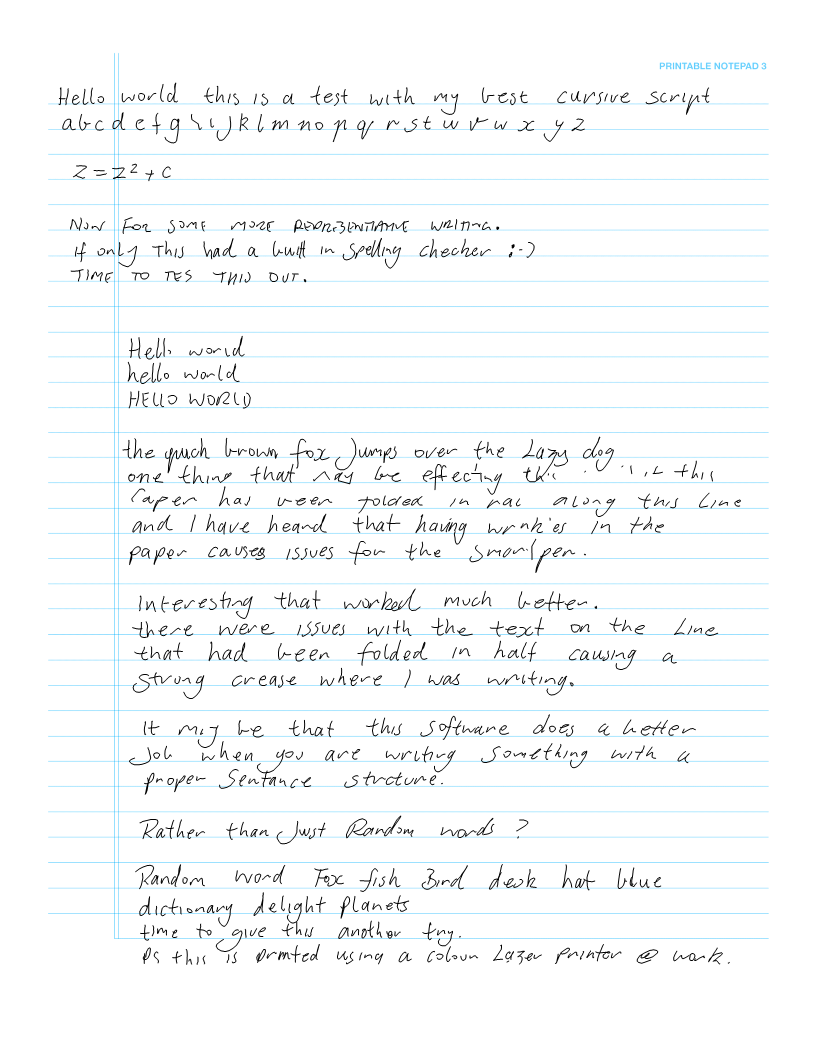 PRINTABLE NOTEPAD 3
Hello world this is a test with my best cursive script
a b c d e f g h i j k l m n o p q r s t u v w x y z
z = z² + c
NOW FOR SOME MORE REPRESENTIATIVE WRITING.
if only This had a built in spelling checker :-)
TIME TO TES THIS OUT.
Hello world
hello world
HELLO WORLD
the quick brown fox Jumps over the Lazy dog
one thing that may be effecting this this
Paper has been folded in along this Line
and I have heard that having wrinkles in the
paper causes issues for the smartpen.
Interesting that worked much better.
there were issues with the text on the Line
that had been folded in half causing a
strong crease where I was writing.
It may be that this software does a better
Job when you are writing something with a
proper Sentance structure.
Rather than Just Random words ?
Random word Fox fish Bird desk hat blue
dictionary delight Planets
time to give this another try.
Ps this is printed using a colour Lazer Printer @ work.